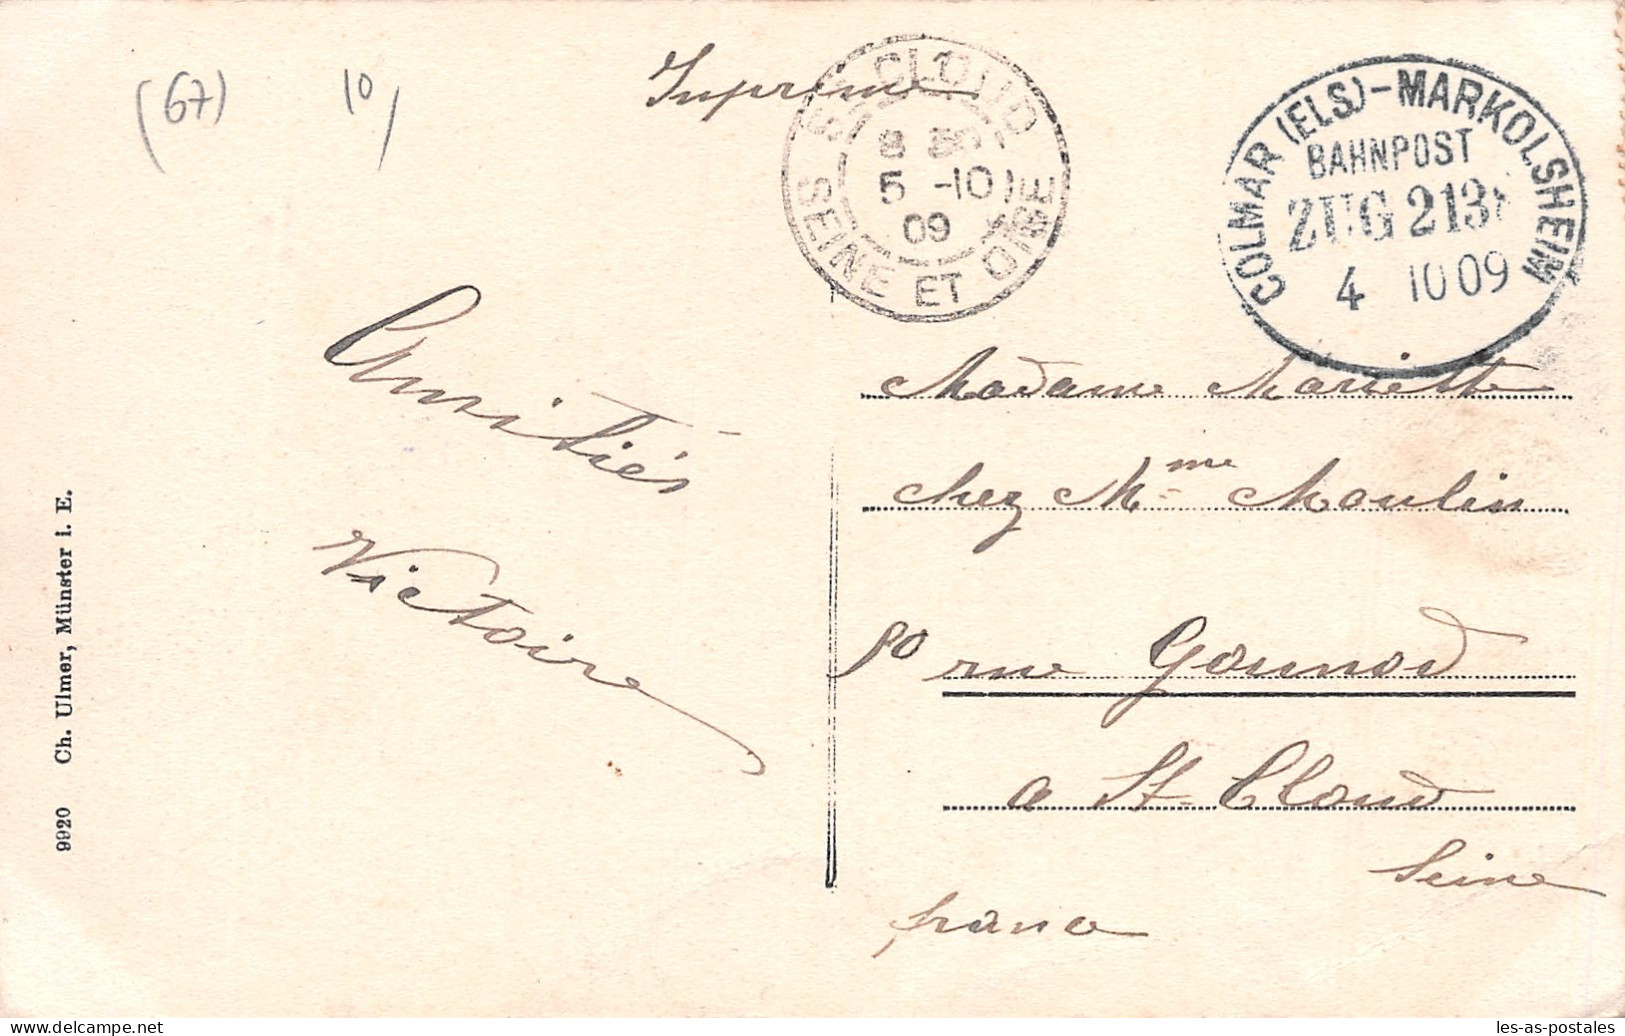 (67) 10)
Imprimé
St CLOUD
8 30
5 -10
09
SEINE ET OISE
COLMAR (ELS)-MARKOLSHEIM
BAHNPOST
ZUG 213
4 10 09
Amitiés
Victoire
Madame Mariette
chez Mme Moulin
rue Gounod
a St-Cloud
Seine
france
9920 Ch. Ulmer, Münster i. E.
les-as-postales
www.delcampe.net